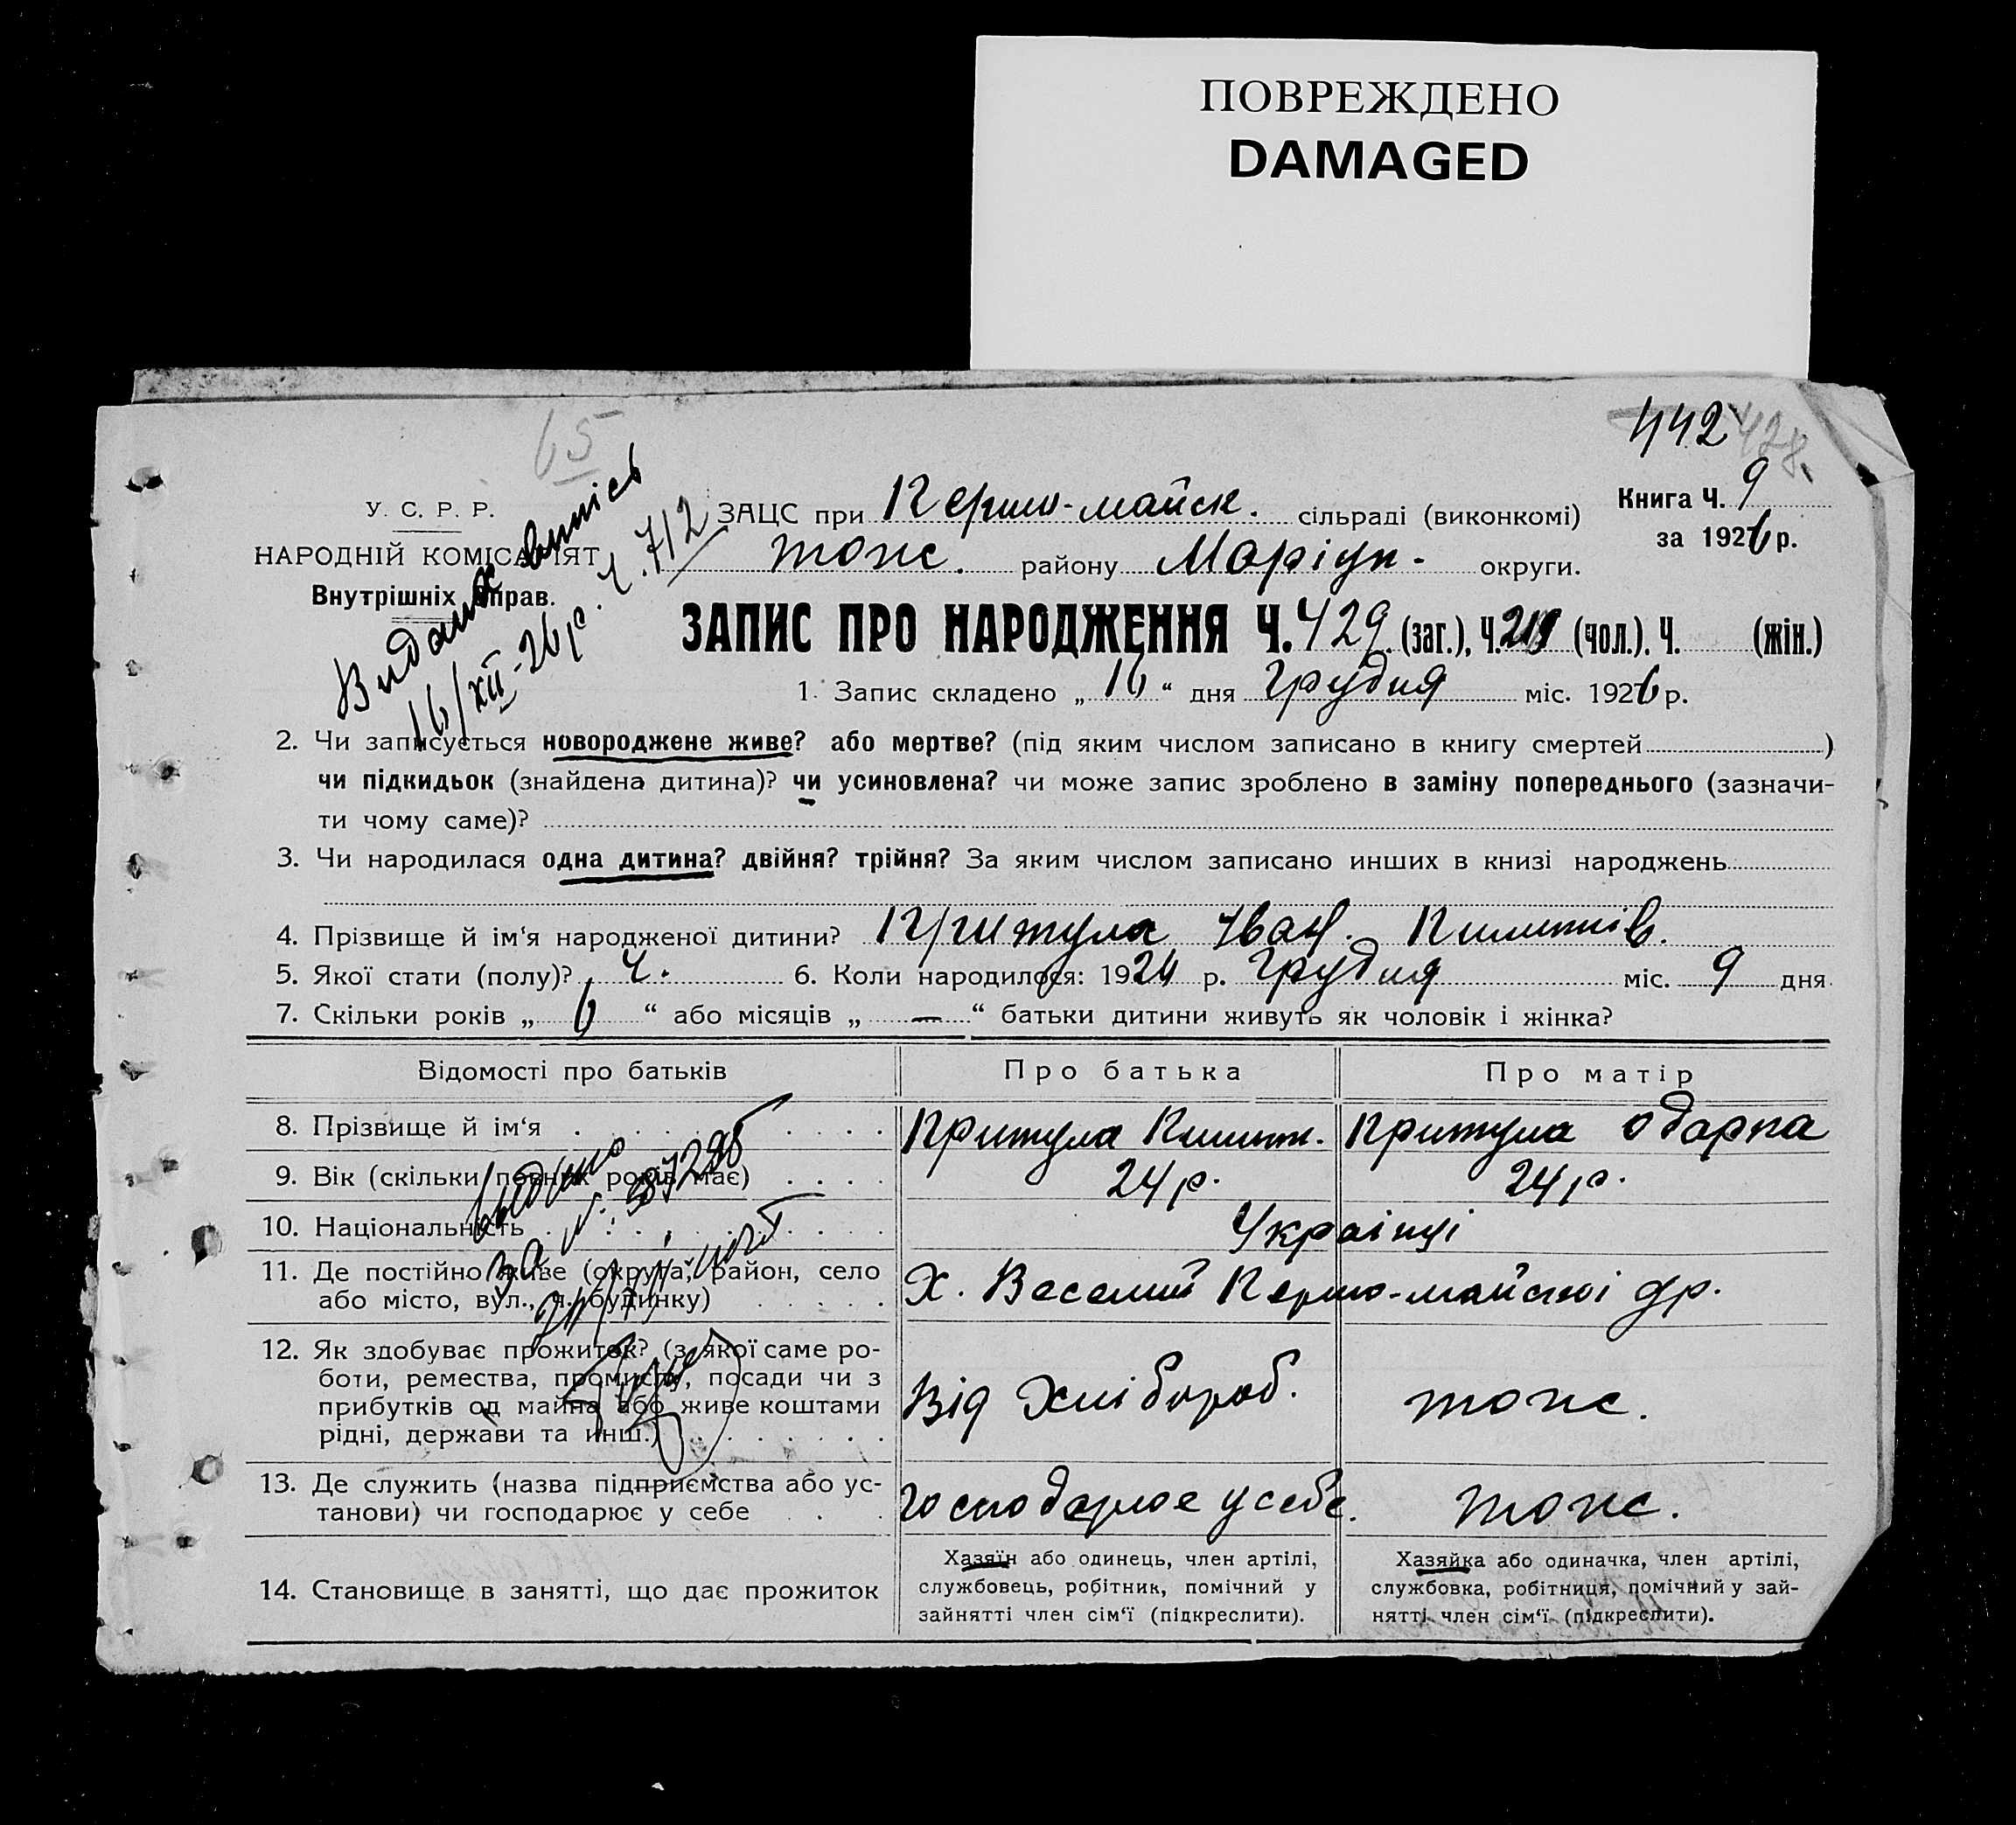 ПОВРЕЖДЕНО
DAMAGED
442 428.
65
Видана виписъ
16/XII-26р. Ч. 712
У. С. Р. Р.
НАРОДНІЙ КОМІСАРІЯТ
Внутрішніх справ.
ЗАЦС при Першо-майск. сільраді (виконкомі)
токс. району Маріуп. округи.
Книга Ч. 9
за 1926 р.
ЗАПИС ПРО НАРОДЖЕННЯ Ч. 429 (заг.), Ч. 219 (чол.), Ч. (жін.)
1. Запис складено „ 16 “ дня Грудня міс. 1926 р.
2. Чи записується новороджене живе? або мертве? (під яким числом записано в книгу смертей )
чи підкидьок (знайдена дитина)? чи усиновлена? чи може запис зроблено в заміну попереднього (зазначи-
ти чому саме)?
3. Чи народилася одна дитина? двійня? трійня? За яким числом записано инших в книзі народжень
4. Прізвище й ім‘я народженої дитини? Притула Іван.
5. Якої стати (полу)? ч. 6. Коли народилося: 1924 р. Грудня міс. 9 дня
7. Скільки років „ 6 “ або місяців „ — “ батьки дитини живуть як чоловік і жінка?
Відомості про батьків
Про батька
Про матір
8. Прізвище й ім‘я
Притула
Притула Одарка
9. Вік (скільки повних років має)
24 р.
24 р.
10. Національність
Українці
11. Де постійно живе (округа, район, село
або місто, вул., ч. будинку)
Х. Веселий Першо-майської др.
12. Як здобуває прожиток? (з якої саме ро-
боти, ремества, промислу, посади чи з
прибутків од майна або живе коштами
рідні, держави та инш.)
Від Хлібороб.
токс.
13. Де служить (назва підприємства або ус-
танови) чи господарює у себе
Господарює у себе.
токс.
14. Становище в занятті, що дає прожиток
Хазяїн або одинець, член артілі,
службовець, робітник, помічний у
зайнятті член сім‘ї (підкреслити).
Хазяйка або одиначка, член артілі,
службовка, робітниця, помічний у зай-
нятті член сім‘ї (підкреслити).
видано
за №